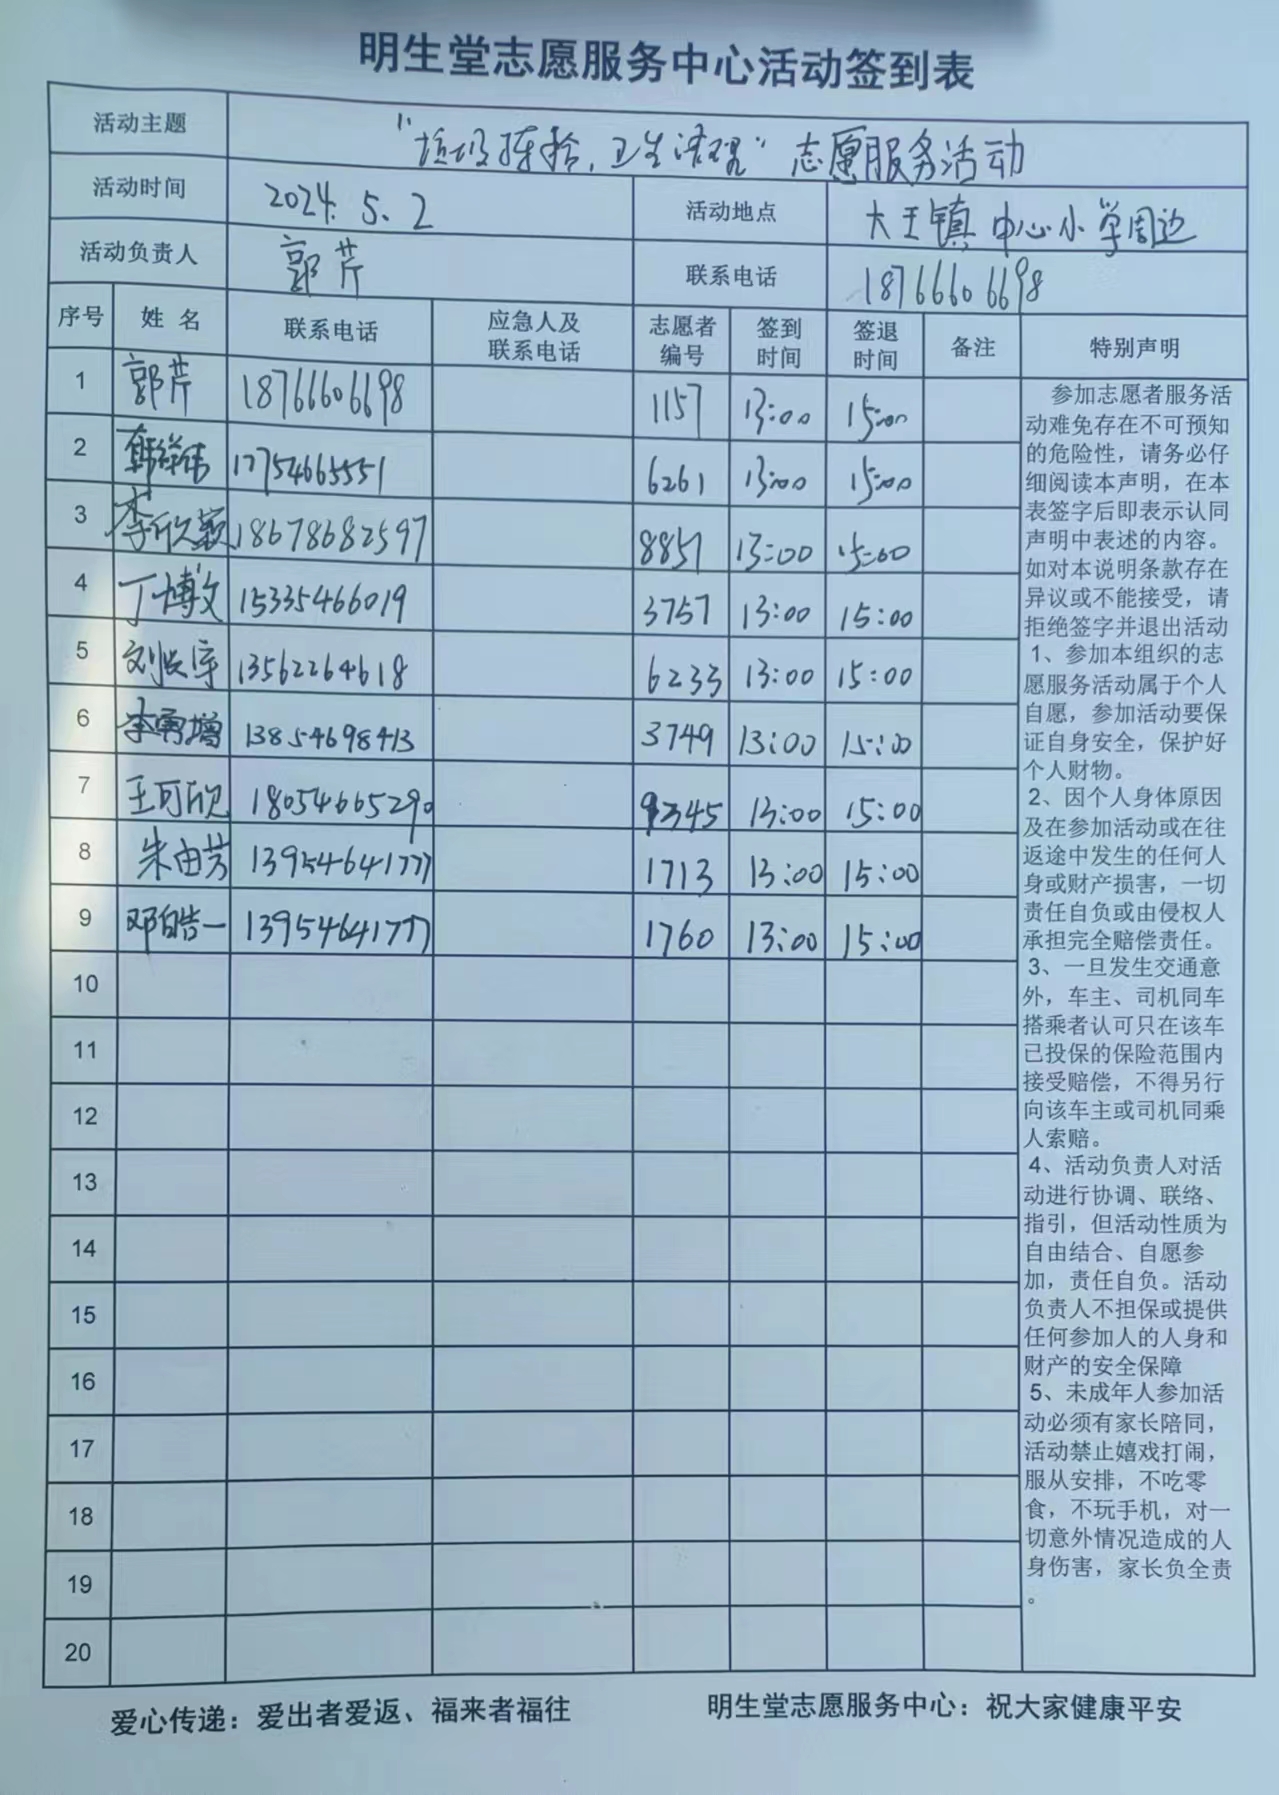 明生堂志愿服务中心活动签到表
活动主题 "垃圾捡拾,卫生清理"志愿服务活动
活动时间 2024.5.2 活动地点 大王镇中心小学周边
活动负责人 郭芹 联系电话 18766606698
序号 姓名 联系电话 应急人及联系电话 志愿者编号 签到时间 签退时间 备注 特别声明
1 郭芹 18766606698 1157 13:00 15:00
2 17754665551 6261 13:00 15:00
3 李欣颖 18678682597 8857 13:00 15:00
4 丁博文 15335466019 3757 13:00 15:00
5 13562264618 6233 13:00 15:00
6 李勇增 13854698413 3749 13:00 15:00
7 王可欣 18054665290 9345 13:00 15:00
8 朱由芳 13954641777 1713 13:00 15:00
9 邓皓一 13954641777 1760 13:00 15:00
10
11
12
13
14
15
16
17
18
19
20
参加志愿者服务活
动难免存在不可预知
的危险性,请务必仔
细阅读本声明,在本
表签字后即表示认同
声明中表述的内容。
如对本说明条款存在
异议或不能接受,请
拒绝签字并退出活动
1、参加本组织的志
愿服务活动属于个人
自愿,参加活动要保
证自身安全,保护好
个人财物。
2、因个人身体原因
及在参加活动或在往
返途中发生的任何人
身或财产损害,一切
责任自负或由侵权人
承担完全赔偿责任。
3、一旦发生交通意
外,车主、司机同车
搭乘者认可只在该车
已投保的保险范围内
接受赔偿,不得另行
向该车主或司机同乘
人索赔。
4、活动负责人对活
动进行协调、联络、
指引,但活动性质为
自由结合、自愿参
加,责任自负。活动
负责人不担保或提供
任何参加人的人身和
财产的安全保障
5、未成年人参加活
动必须有家长陪同,
活动禁止嬉戏打闹,
服从安排,不吃零
食,不玩手机,对一
切意外情况造成的人
身伤害,家长负全责
。
爱心传递:爱出者爱返、福来者福往 明生堂志愿服务中心:祝大家健康平安